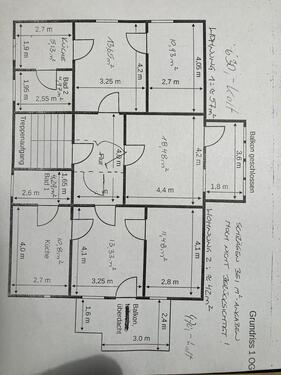 Grundriss 1 OG
SCHRÄGEN BEI m² ANGABEN
NOCH NICHT BERÜCKSICHTIGT!
WOHNUNG 1: ≈ 57 m²
WOHNUNG 2: ≈ 42 m²
Balkon geschlossen
3,6 m
1,8 m
4,05 m
10,93 m²
2,7 m
4,2 m
18,48 m²
4,4 m
4,1 m
11,48 m²
2,8 m
4,2 m
13,65 m²
3,25 m
4,0 m
Flur
4,1 m
13,33 m²
3,25 m
Balkon,
überdacht
2,4 m
1,6 m
3,0 m
2,7 m
Küche
5,13 m²
1,9 m
Bad 2
4,97 m²
1,95 m
2,55 m
Treppenaufgang
Bad 1
4,29 m²
1,65 m
2,6 m
Küche
10,8 m²
4,0 m
2,7 m